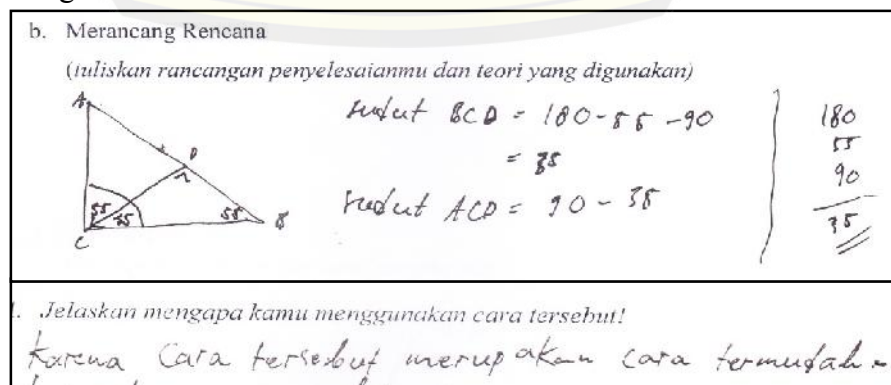 b. Merancang Rencana
(tuliskan rancangan penyelesaianmu dan teori yang digunakan)
A
D
55 35 55 B
C
sudut BCD = 180-55-90
= 35
sudut ACD = 90-35
180
55
90
35
. Jelaskan mengapa kamu menggunakan cara tersebut!
karena cara tersebut merupakan cara termudah